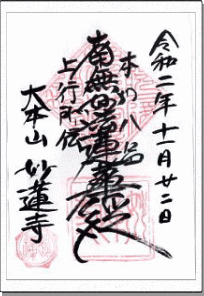 令和二年十一月廿二日
本門八品
南無妙法蓮華経
上行所伝
大本山 妙蓮寺